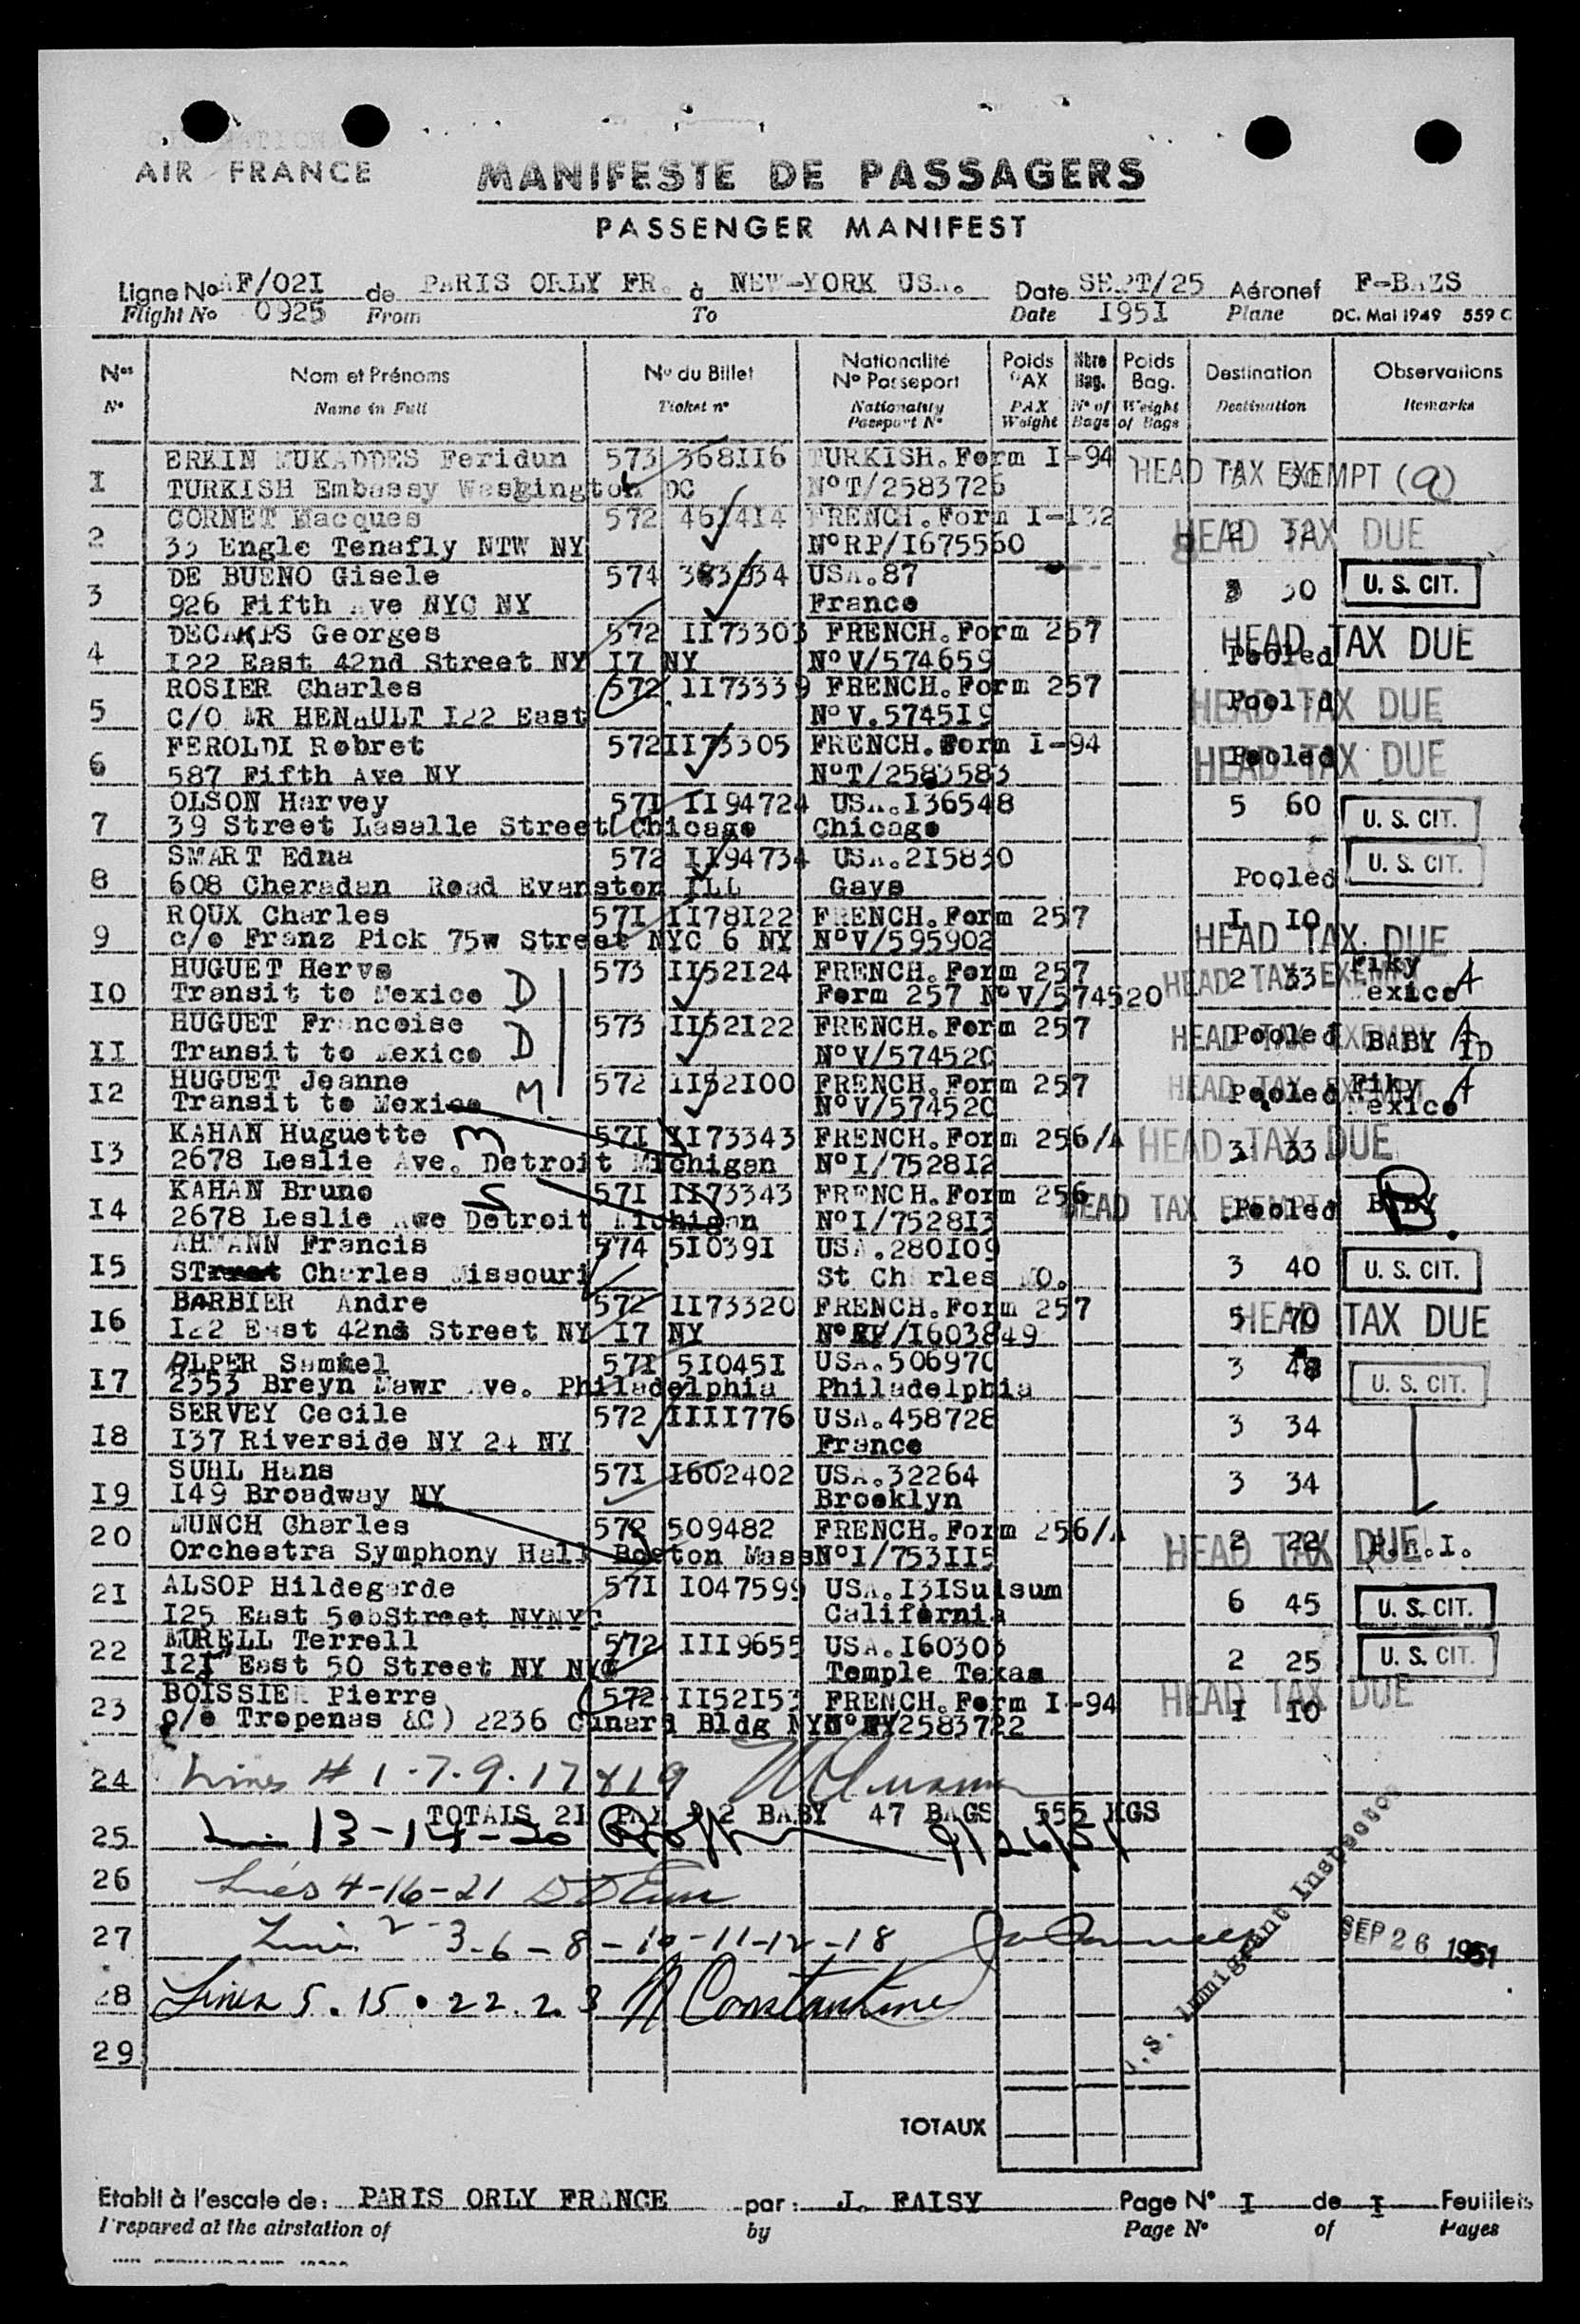 AIR FRANCE
MANIFESTE DE PASSAGERS
PASSENGER MANIFEST
Ligne No AF/02I de PARIS ORLY FR. à NEW-YORK USA. Date SEPT/25 Aéronef F-BAZS
Flight No 0925 From To Date I95I Plane DC. Mai 1949 559 C
Nos Nom et Prénoms No du Billet Nationalité No Passeport Poids PAX Nbre Bag. Poids Bag. Destination Observations
No Name in Full Ticket no Nationality Passport No PAX Weight No of Bags Weight of Bags Destination Remarks
I ERKIN MUKADDES Feridun 573 368II6 TURKISH.Form I-94 HEAD TAX EXEMPT (a)
TURKISH Embassy Washington DC NoT/2583726
2 CORNET Macques 572 46I4I4 FRENCH.Form I-I32 2 32 HEAD TAX DUE
33 Engle Tenafly NTW NY NoRP/I675560
3 DE BUENO Gisele 574 383834 USA.87 3 30 U. S. CIT.
926 Fifth Ave NYC NY France
4 DECAMPS Georges 572 II73303 FRENCH.Form 257 Pooled HEAD TAX DUE
I22 East 42nd Street NY I7 NY NoV/574659
5 ROSIER Charles 572 II73339 FRENCH.Form 257 Pooled HEAD TAX DUE
C/O MR HENAULT I22 East NoV.5745I9
6 FEROLDI Robret 572 II73305 FRENCH.Form I-94 Pooled HEAD TAX DUE
587 Fifth Ave NY NoT/2583583
7 OLSON Harvey 57I II94724 USA.I36548 5 60 U. S. CIT.
39 Street Lasalle Street Chicago Chicago
8 SMART Edna 572 II94734 USA.2I5830 Pooled U. S. CIT.
608 Cheradan Road Evanston ILL Gays
9 ROUX Charles 57I II78I22 FRENCH.Form 257 I IO HEAD TAX DUE
c/o Franz Pick 75w Street NYC 6 NY NoV/595902
IO HUGUET Herve 573 II52I24 FRENCH.Form 257 2 33 HEAD TAX EXEMPT Fiky A
Transit to Mexico D Form 257 NoV/574520 Mexico
II HUGUET Francoise 573 II52I22 FRENCH.Form 257 Pooled HEAD TAX EXEMPT BABY A
Transit to Mexico D NoV/574520 ID
I2 HUGUET Jeanne 572 II52I00 FRENCH.Form 257 Pooled HEAD TAX EXEMPT Fiky A
Transit to Mexico M NoV/574520 Mexico
I3 KAHAN Huguette m 57I II73343 FRENCH.Form 256/A 3 33 HEAD TAX DUE
2678 Leslie Ave. Detroit Michigan NoI/7528I2
I4 KAHAN Bruno S 57I II73343 FRENCH.Form 256 Pooled HEAD TAX EXEMPT BABY B.
2678 Leslie Ave Detroit Michigan NoI/7528I3
I5 AHMANN Francis 574 5I039I USA.280I09 3 40 U. S. CIT.
ST Charles Missouri St Charles MO.
I6 BARBIER Andre 572 II73320 FRENCH.Form 257 5 70 HEAD TAX DUE
I22 East 42nd Street NY I7 NY NoRP/I603849
I7 ALPER Samuel 57I 5I045I USA.506970 3 48 U. S. CIT.
2353 Breyn Mawr Ave. Philadelphia Philadelphia
I8 SERVEY Cecile 572 IIII776 USA.458728 3 34
I37 Riverside NY 24 NY France
I9 SUHL Hans 57I I602402 USA.32264 3 34
I49 Broadway NY Brooklyn
20 MUNCH Charles 572 509482 FRENCH.Form 256/A 2 22 HEAD TAX DUE
Orchestra Symphony Hall Boston Mass NoI/753II5
2I ALSOP Hildegarde 57I I047599 USA.I3ISulsum 6 45 U. S. CIT.
I25 East 50bStreet NYNYC California
22 MURELL Terrell 572 III9655 USA.I60303 2 25 U. S. CIT.
I2I East 50 Street NY NYC Temple Texas
23 BOISSIER Pierre 572 II52I53 FRENCH.Form I-94 I IO HEAD TAX DUE
c/o Tropenas &C) 2236 Cunard Bldg NYC 2583722
24 Lines # 1-7-9-17 & 19
TOTAIS 2I PAX 2 BABY 47 BAGS 555 KGS
25 13-14-20 9/26/51
26 Lines 4-16-21
27 Line 2-3-6-8-10-11-12-18 SEP 26 1951
28 Lines 5.15.22.23 N Constantine
29
U.S. Immigrant Inspector
TOTAUX
Etabli à l'escale de: PARIS ORLY FRANCE par: J. FAISY Page No I de I Feuillets
Prepared at the airstation of by Page No of Pages